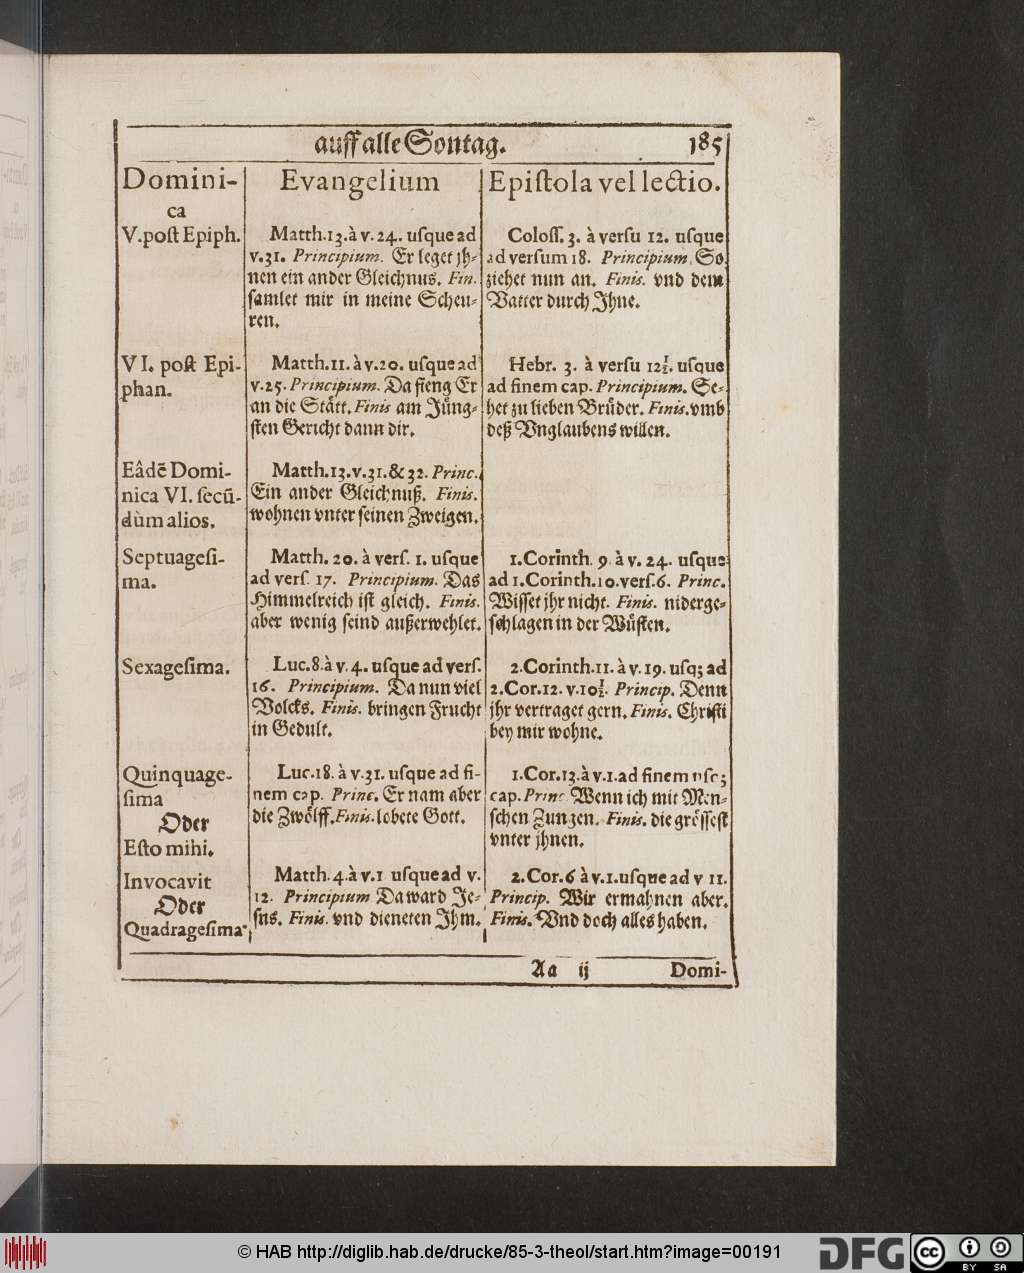 auff alle Sontag. 185
Domini-
ca
Evangelium
Epistola vel lectio.
V. post Epiph.
Matth. 13. à v. 24. usque ad
v. 31. Principium. Er leget jh-
nen ein ander Gleichnus. Fin.
samlet mir in meine Scheu-
ren.
Coloss. 3. à versu 12. usque
ad versum 18. Principium. So
ziehet nun an. Finis. vnd dem
Vatter durch Jhne.
VI. post Epi-
phan.
Matth. 11. à v. 20. usque ad
v. 25. Principium. Da fieng Er
an die Stätt. Finis am Jüng-
sten Gericht dann dir.
Hebr. 3. à versu 12½. usque
ad finem cap. Principium. Se-
het zu lieben Brüder. Finis. vmb
deß Vnglaubens willen.
Eâdē Domi-
nica VI. secū-
dùm alios.
Matth. 13. v. 31. & 32. Princ.
Ein ander Gleichnuß. Finis.
wohnen vnter seinen Zweigen.
Septuagesi-
ma.
Matth. 20. à vers. 1. usque
ad vers. 17. Principium. Das
Himmelreich ist gleich. Finis.
aber wenig seind außerwehlet.
1. Corinth. 9. à v. 24. usque
ad 1. Corinth. 10. vers. 6. Princ.
Wisset jhr nicht. Finis. niderge-
schlagen in der Wüsten.
Sexagesima.
Luc. 8. à v. 4. usque ad vers.
16. Principium. Da nun viel
Volcks. Finis. bringen Frucht
in Gedult.
2. Corinth. 11. à v. 19. usq; ad
2. Cor. 12. v. 10½. Princip. Denn
jhr vertraget gern. Finis. Christi
bey mir wohne.
Quinquage-
sima
Oder
Esto mihi.
Luc. 18. à v. 31. usque ad fi-
nem cap. Princ. Er nam aber
die Zwölff. Finis. lobete Gott.
1. Cor. 13. à v. 1. ad finem usq;
cap. Princ. Wenn ich mit Men-
schen Zungen. Finis. die grössest
vnter jhnen.
Invocavit
Oder
Quadragesima.
Matth. 4. à v. 1 usque ad v.
12. Principium Da ward Je-
sus. Finis. vnd dieneten Ihm.
2. Cor. 6 à v. 1. usque ad v 11.
Princip. Wir ermahnen aber.
Finis. Vnd doch alles haben.
Aa ij Domi-
© HAB http://diglib.hab.de/drucke/85-3-theol/start.htm?image=00191
DFG
cc
BY SA